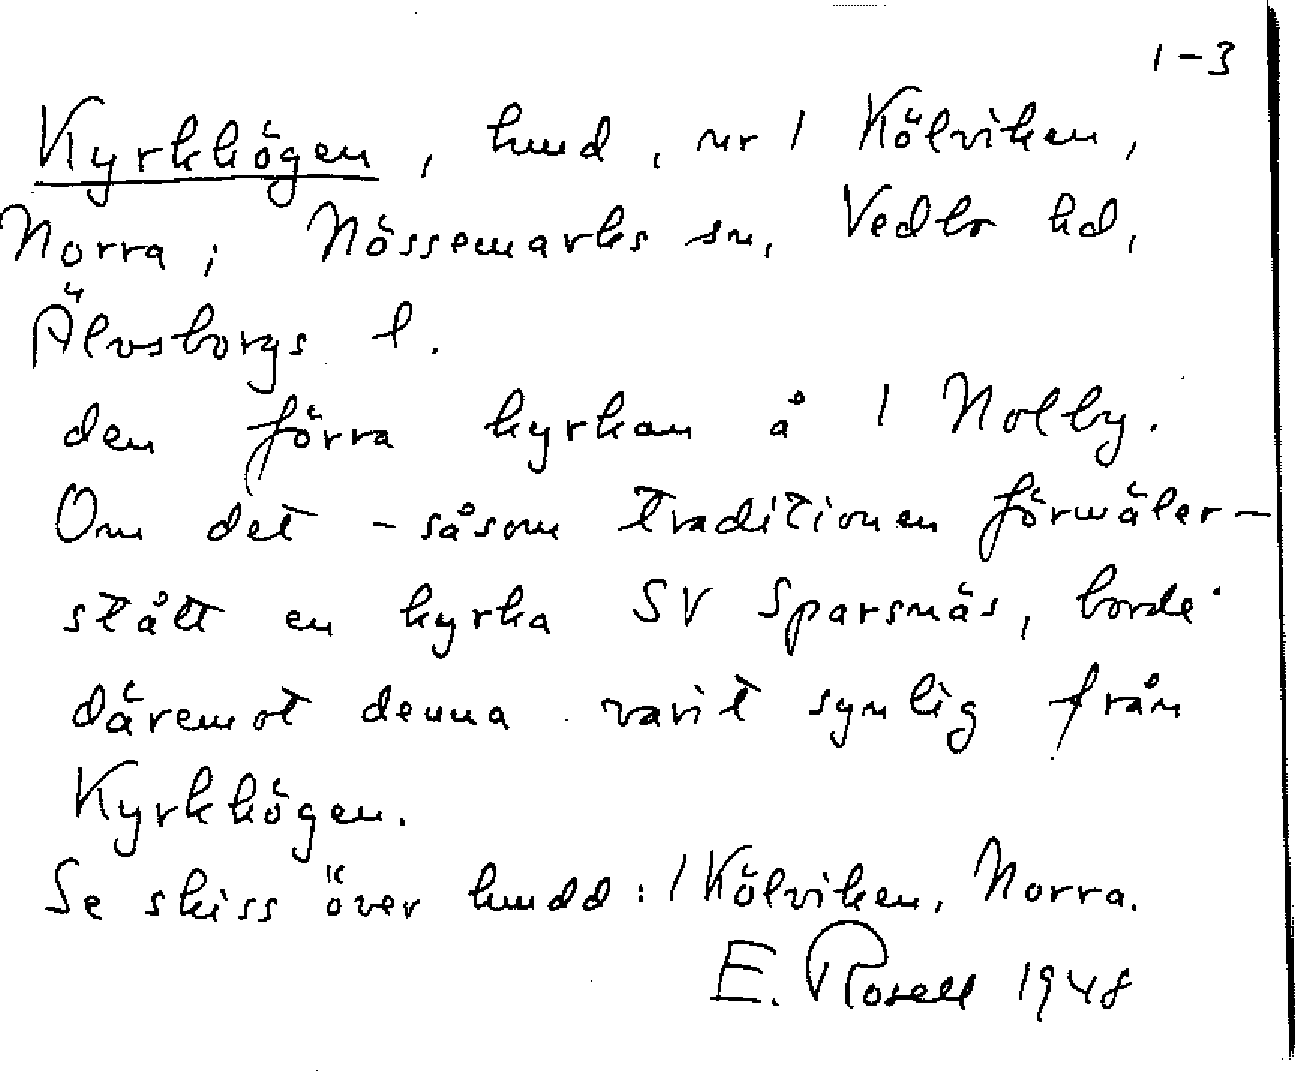 1-3
Kyrkhögen, hmd, nr 1 Kölviken,
Norra; Nössemarks sn, Vedbo hd,
Älvsborgs l.
den förra kyrkan å 1 Nolby.
Om det - såsom traditionen förmäler-
stått en kyrka SV Sparsnäs, borde
däremot denna varit synlig från
Kyrkhögen.
Se skiss över hmdd: 1 Kölviken, Norra.
E. Rosell 1948